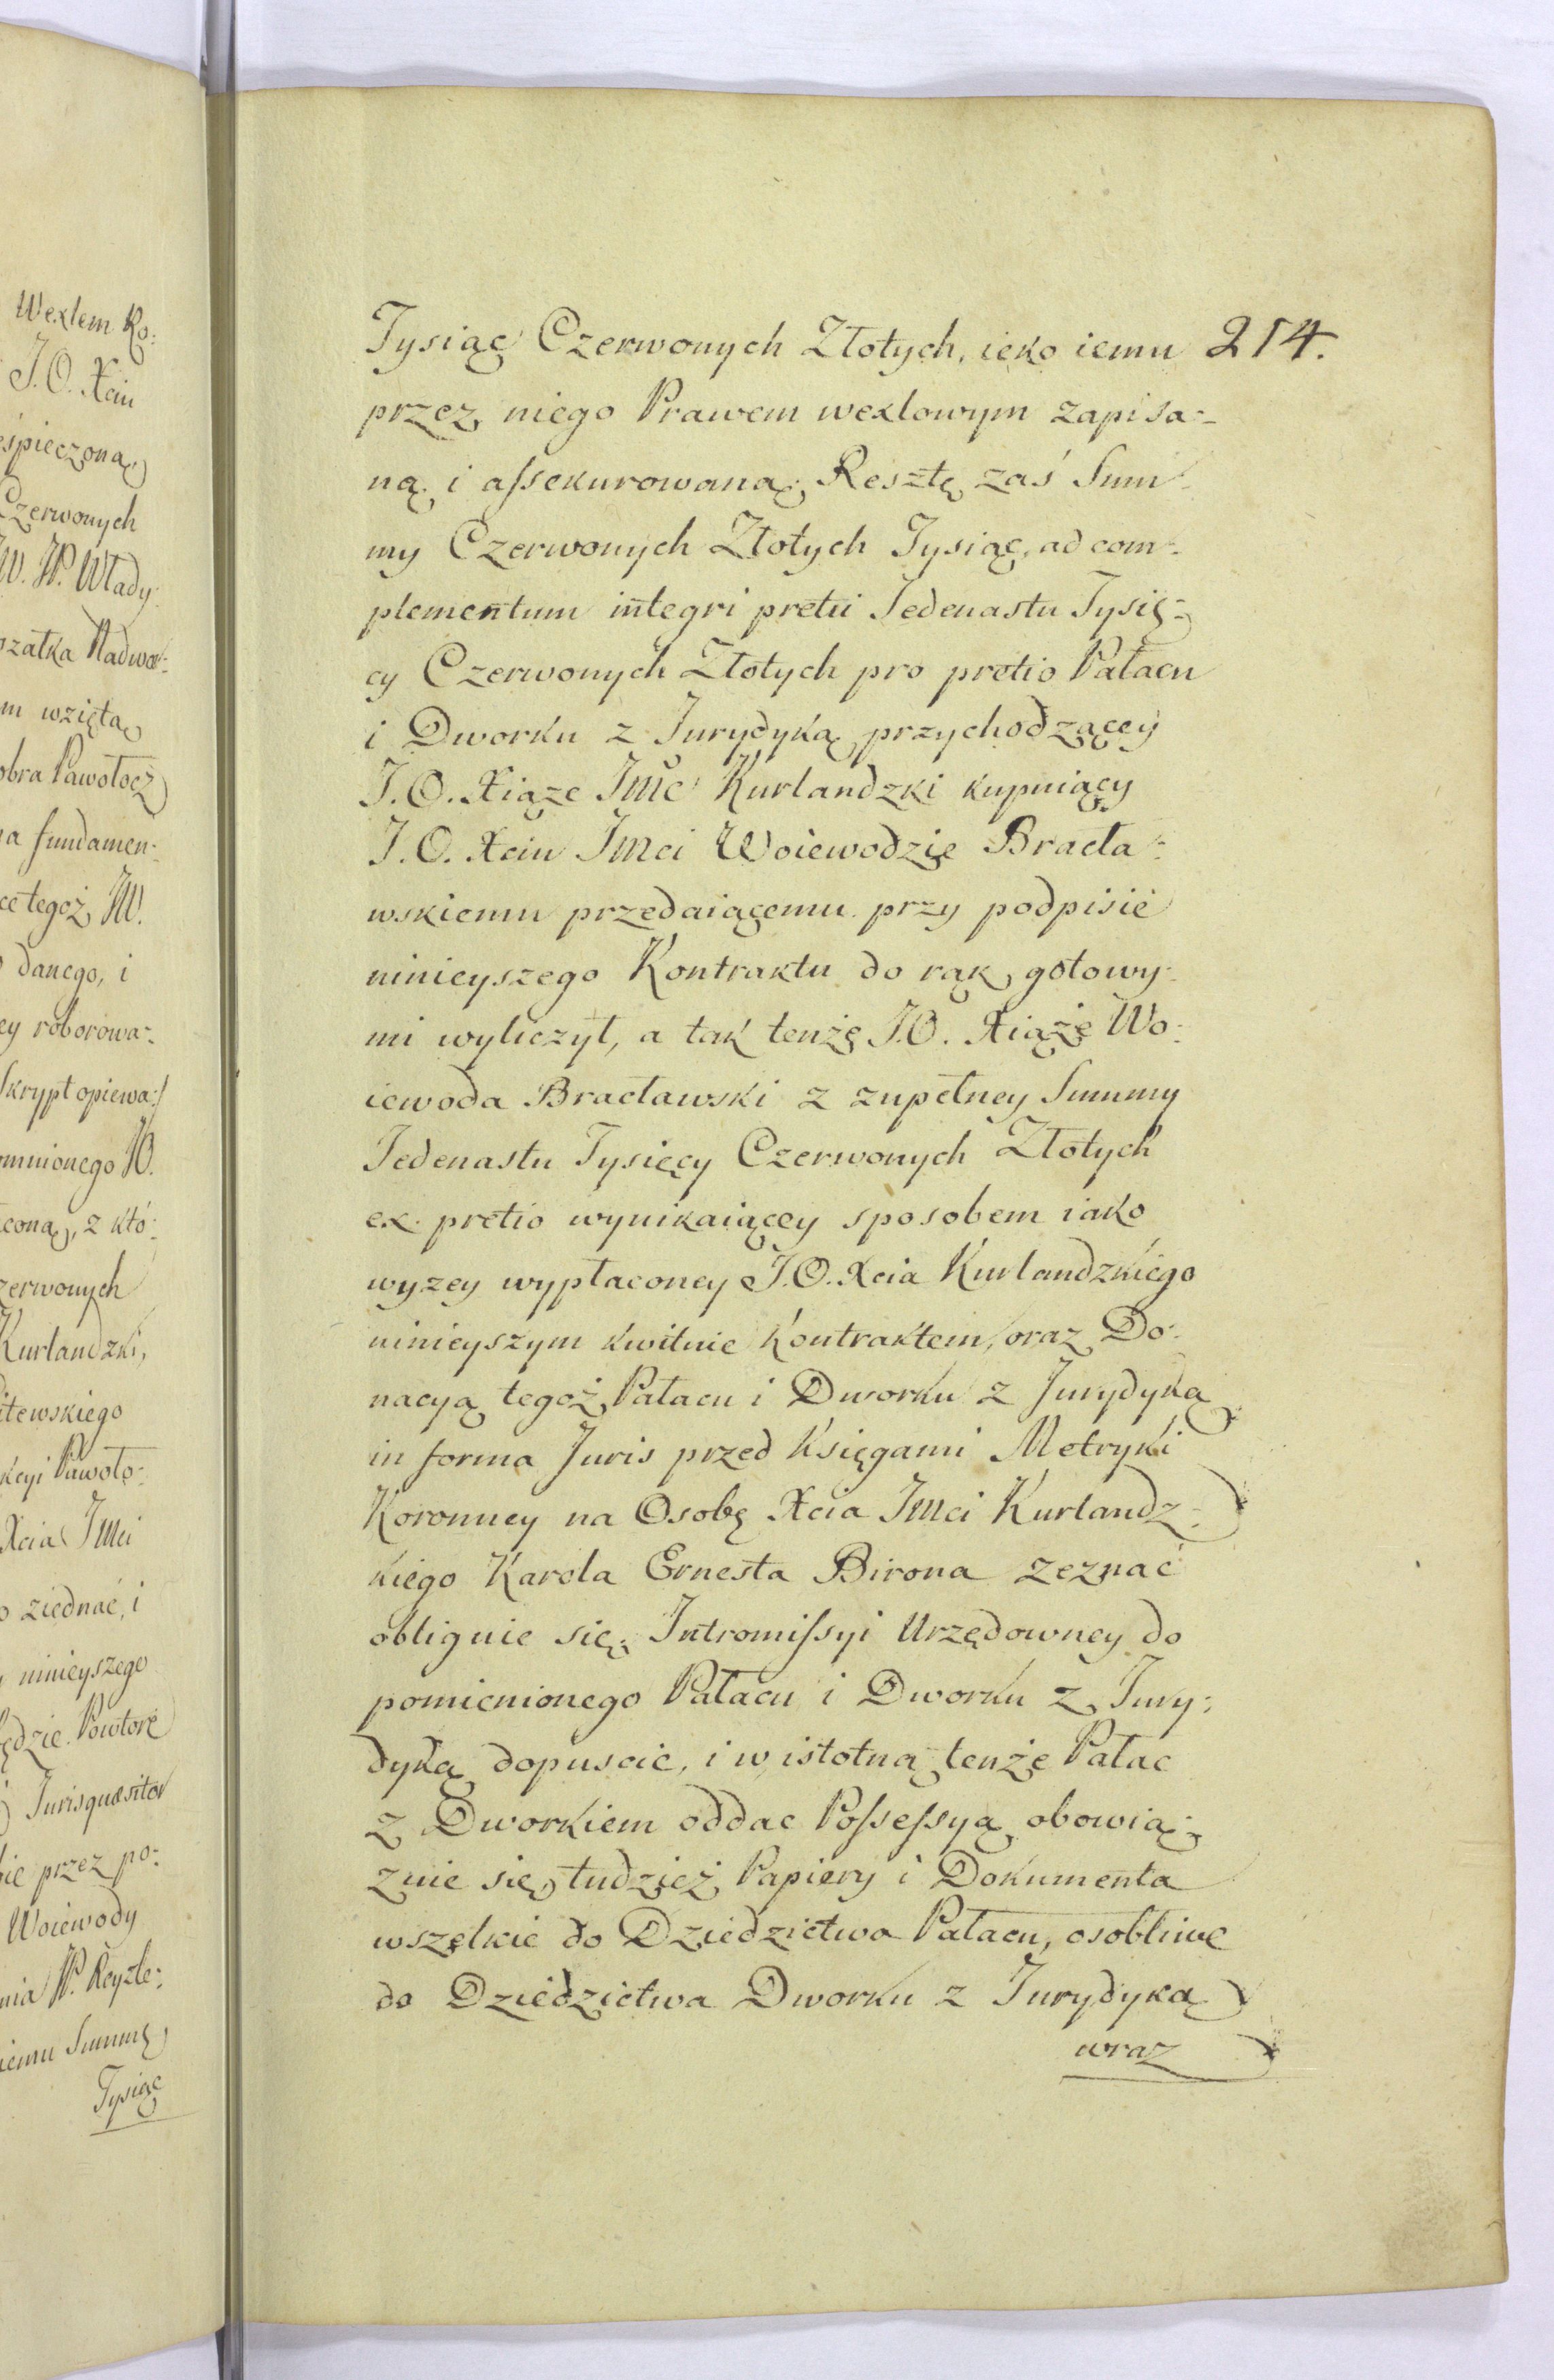 Wexlem Ko:
J.O. Xciu
eśpieczoną
Czerwonych
JW. JP. Włady:
szałka Nadwor:
m wziętą
obra Pawołocz
a fundamen:
ce tegoż JW.
danego, i
ey roborowa:
skrypt opiewa:/
omnionego JO.
coną, z któ:
zerwonych
Kurlandzki,
itewskiego
kcyi Pawoło:
Xcia Jmci
o ziednać, i
ninieyszego
ędzie. Powtore
Jurisquæsitor
ie przez po:
Woiewody
nia JP. Keyzle:
iemu Summę
Tysiąc
Tysiąc Czerwonych Złotych, ieko iemu 214.
przez niego Prawem wexlowym zapisa:
ną i assekurowaną; Resztę zaś Sum
my Czerwonych Złotych Tysiąc, ad com:
plementum integri pretii Jedenastu Tysię:
cy Czerwonych Złotych pro pretio Pałacu
i Dworku z Jurydyką przychodzącey
J.O. Xiąze Jmć Kurlandzki kupuiący
J.O. Xciu Jmci Woiewodzie Bracła:
wskiemu przedaiącemu przy podpisie
ninieyszego Kontraktu do rąk gotowy:
mi wyliczył, a tak tenże J.O. Xiąże Wo:
iewoda Bracławski z zupełney Summy
Jedenastu Tysięcy Czerwonych Złotych
ex pretio wynikaiącey sposobem iako
wyzey wypłaconey J.O. Xcia Kurlandzkiego
ninieyszym kwituie Kontraktem, oraz Do:
nacyą tegoż Pałacu i Dworku z Jurydyką
in forma Juris przed Księgami Metryki
Koronney na Osobę Xcia Jmci Kurlandz:
kiego Karola Ernesta Birona zeznać
obliguie się; Intromissyi Urzędowney do
pomienionego Pałacu i Dworku z Jury:
dyką dopuscic, i w istotną tenże Pałac
z Dworkiem oddac Possessyą obowią:
zuie się, tudzież Papiery i Dokumenta
wszelkie do Dziedzictwa Pałacu, osobliwe
do Dziedzictwa Dworku z Jurydyką
wraz